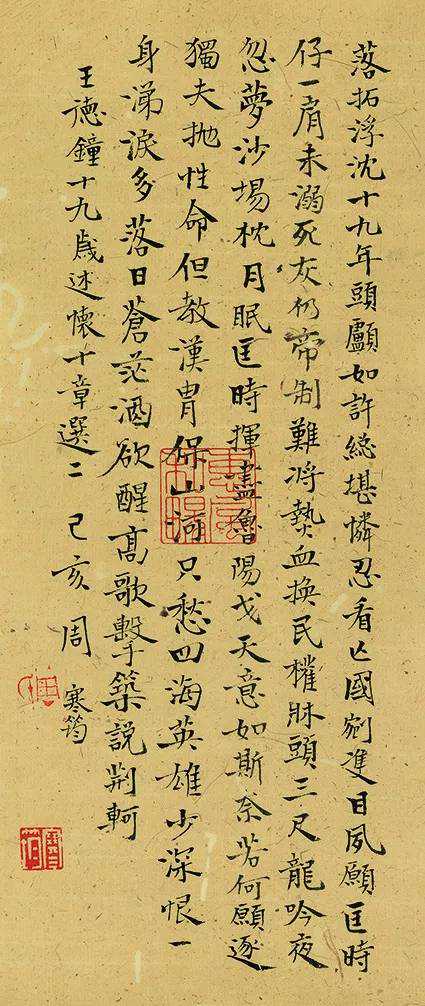 落拓浮沈十九年頭顱如許總堪憐忍看亡國剜隻目夙願匡時
仔一肩未溺死灰仍帝制難將熱血換民權牀頭三尺龍吟夜
忽夢沙場枕月眠匡時揮盡魯陽戈天意如斯奈若何願逐
獨夫拋性命但教漢胄保山河只愁四海英雄少深恨一
身涕淚多落日蒼茫酒欲醒高歌擊築說荊軻
王德鐘十九歲述懷十章選二 己亥 周寒筠